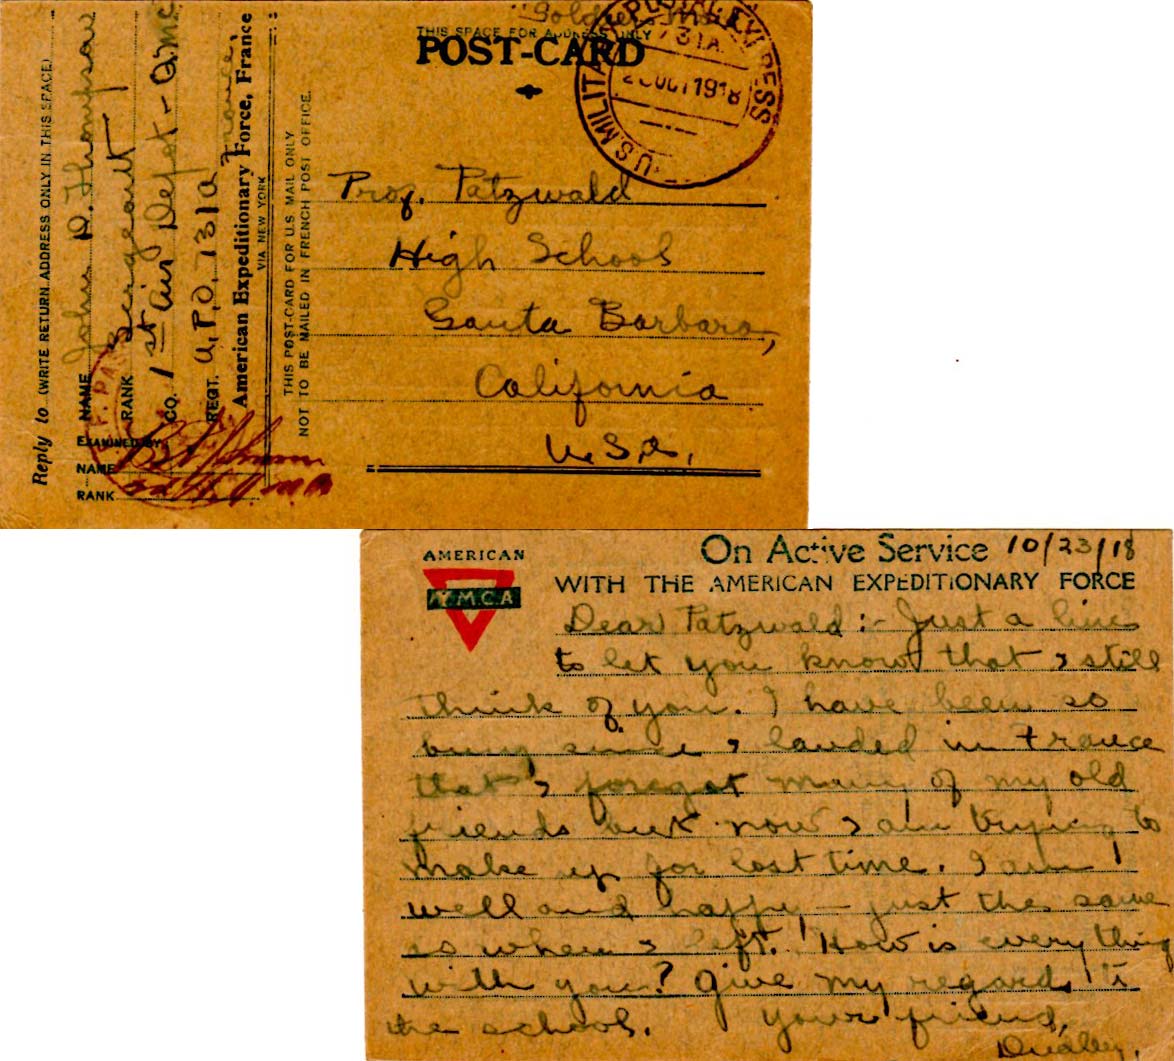 Soldier's Mail
THIS SPACE FOR ADDRESS ONLY
POST-CARD
U.S. MILITARY POSTAL EXPRESS
731A.
OCT 1918
Prof. Patzwald
High School
Santa Barbara,
California
U.S.A.
Reply to (WRITE RETURN ADDRESS ONLY IN THIS SPACE)
NAME John D. Thompson
RANK Sergeant
CO. 1st Air Depot - A
REGT. A.P.O. 731A France.
American Expeditionary Force, France
VIA NEW YORK
THIS POST-CARD FOR U.S. MAIL ONLY
NOT TO BE MAILED IN FRENCH POST OFFICE.
EXAMINED BY
NAME
RANK
AMERICAN
Y.M.C.A
On Active Service 10/23/18
WITH THE AMERICAN EXPEDITIONARY FORCE
Dear Patzwald :- Just a line
to let you know that I still
think of you. I have been so
busy since I landed in France
that I forgot many of my old
friends but now I am trying to
make up for lost time. I am
well and happy - just the same
as when I left. How is everything
with you? Give my regards to
the school. Your friend,
Dudley.